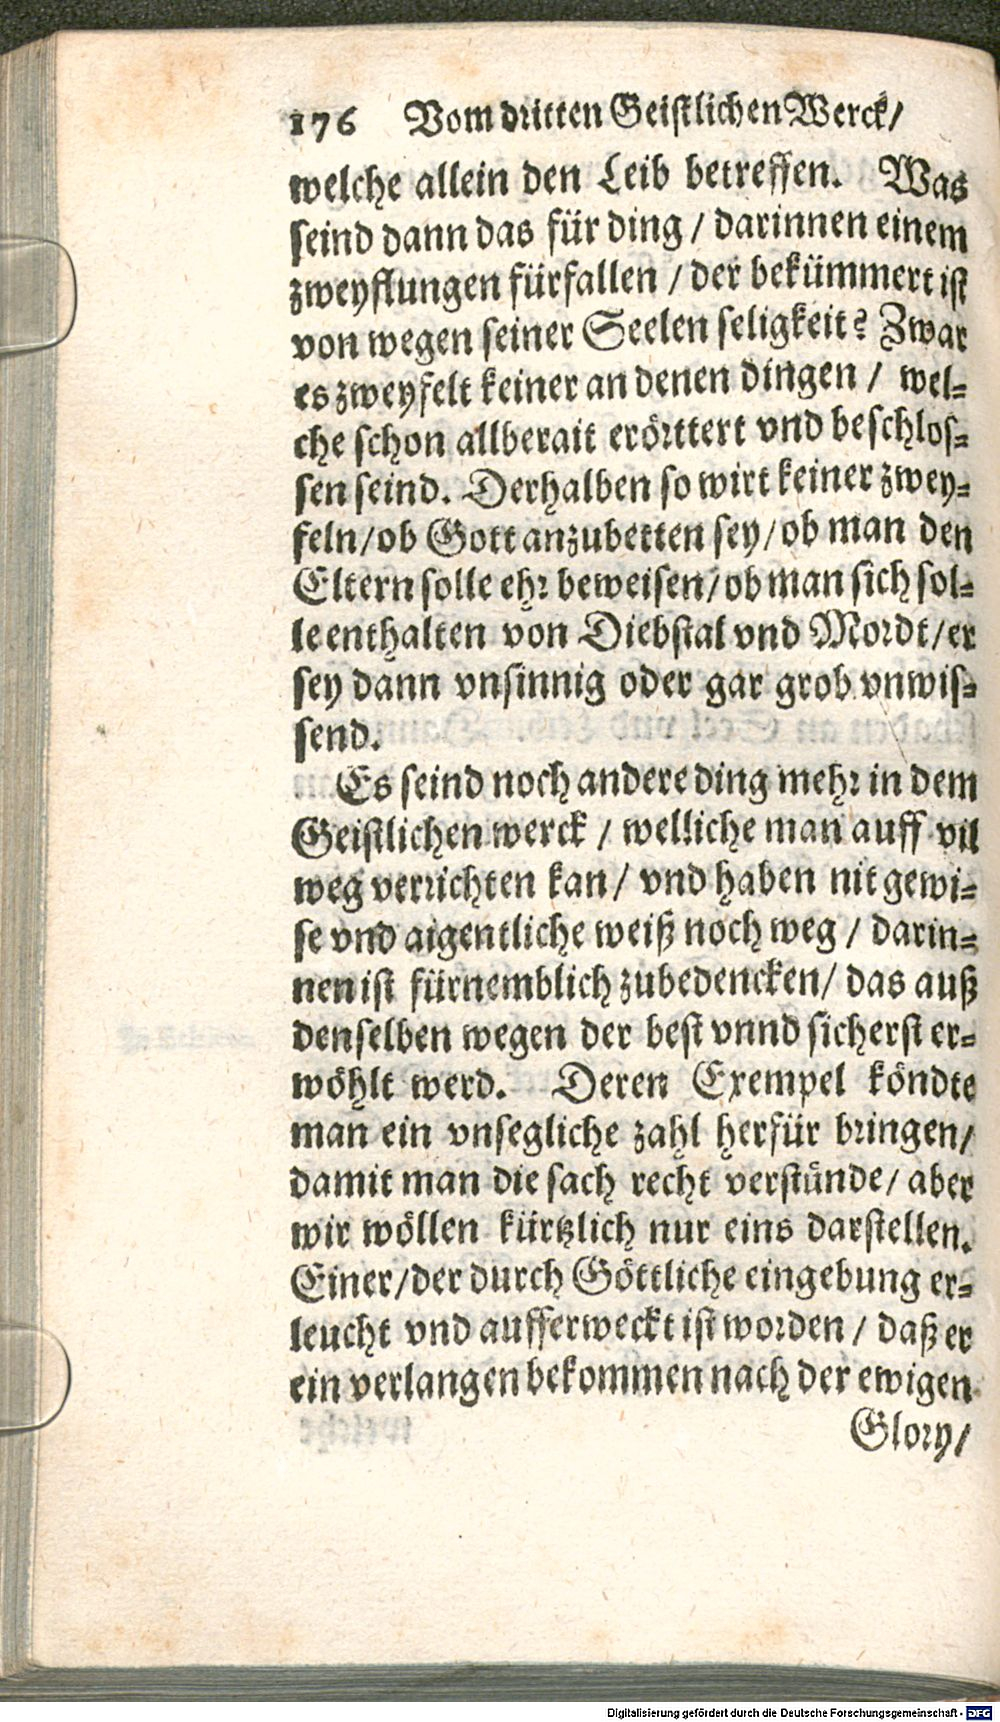 176 Vom dritten Geistlichen Werck/
welche allein den Leib betreffen. Was
seind dann das für ding / darinnen einem
zweyflungen fürfallen / der bekümmert ist
von wegen seiner Seelen seligkeit? Zwar
es zweyfelt keiner an denen dingen / wel-
che schon allberait erörttert vnd beschlos-
sen seind. Derhalben so wirt keiner zwey-
feln/ob Gott anzubetten sey/ob man den
Eltern solle ehr beweisen/ob man sich sol-
le enthalten von Diebstal vnd Mordt/er
sey dann vnsinnig oder gar grob vnwis-
send.
Es seind noch andere ding mehr in dem
Geistlichen werck / welliche man auff vil
weg verrichten kan/ vnd haben nit gewi-
se vnd aigentliche weiß noch weg / darin-
nen ist fürnemblich zubedencken/ das auß
denselben wegen der best vnnd sicherst er-
wöhlt werd. Deren Exempel köndte
man ein vnsegliche zahl herfür bringen/
damit man die sach recht verstünde/ aber
wir wöllen kürtzlich nur eins darstellen.
Einer/der durch Göttliche eingebung er-
leucht vnd aufferweckt ist worden / daß er
ein verlangen bekommen nach der ewigen
Glory/
Digitalisierung gefördert durch die Deutsche Forschungsgemeinschaft - DFG